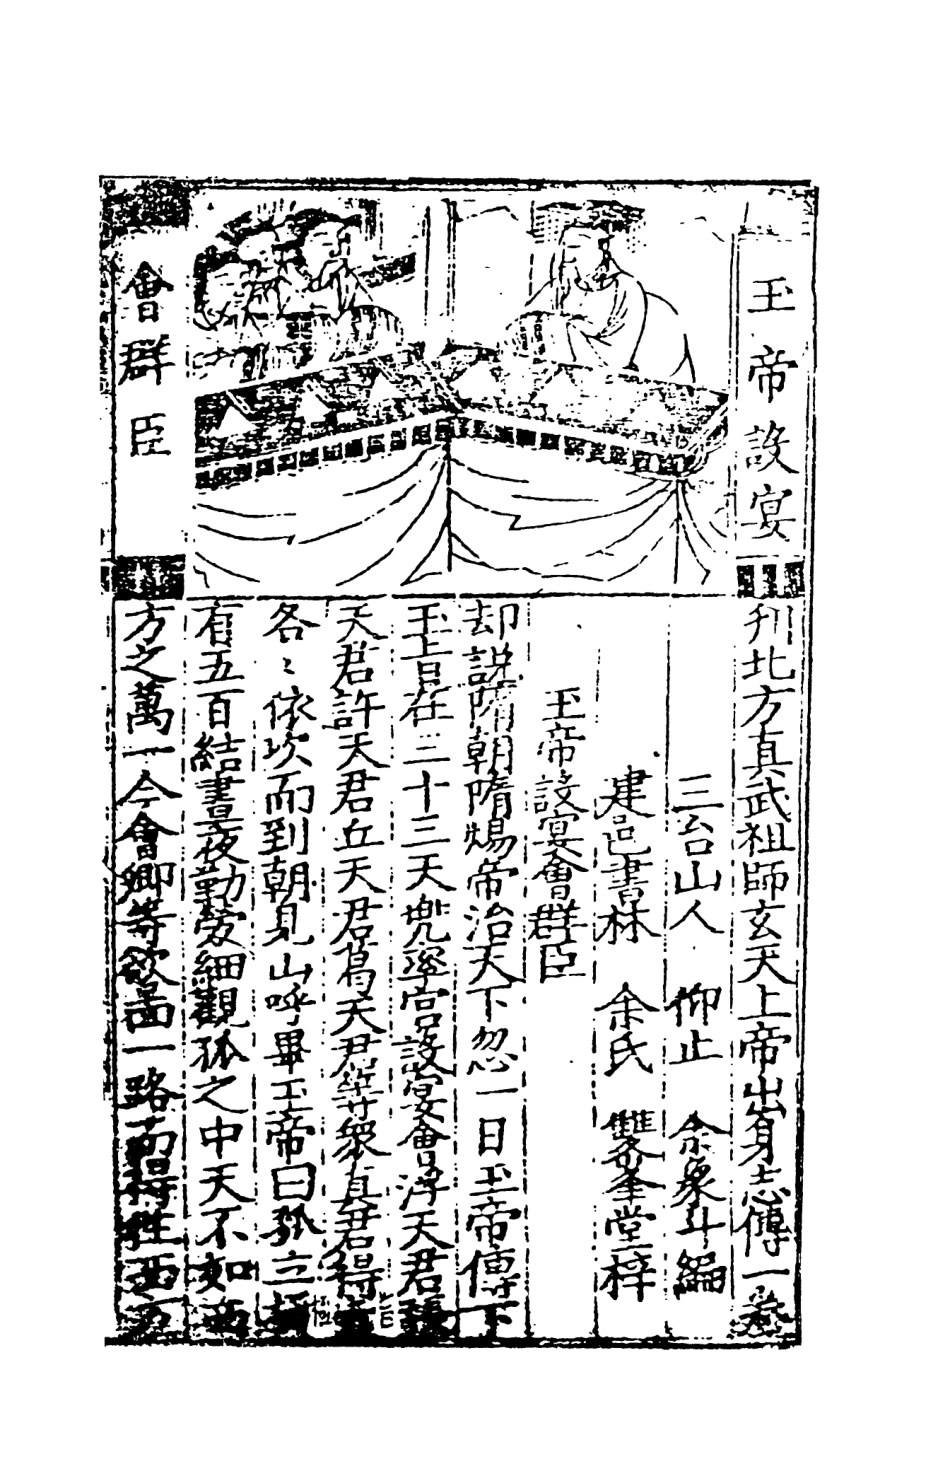 玉帝設宴
會群臣
刋北方真武祖師玄天上帝出身志傳一卷
三台山人 仰止 余象斗編
建邑書林 余氏 雙峯堂梓
玉帝設宴會群臣
却說隋朝隋煬帝治天下忽一日玉帝傳下
玉旨在三十三天兠率宮設宴會浮天君張
天君許天君丘天君葛天君等衆真君得旨
各〻依次而到朝見山呼畢玉帝曰孤立極
有五百結晝夜勤勞細觀孤之中天不如西
方之萬一今會卿等欲啚一路